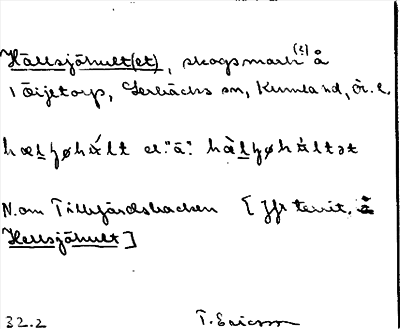 Hällsjöhult(et), skogsmark (t) å
1 Öijetorp, Gerbäcks sn, Kumland, Ör. l.
hælʒøhált el. "ä": hàlʒøháltət
N. om Tillfjärdsbacken [Jfr territ. å
Hellsjöhult]
32.2 T. Ericsson